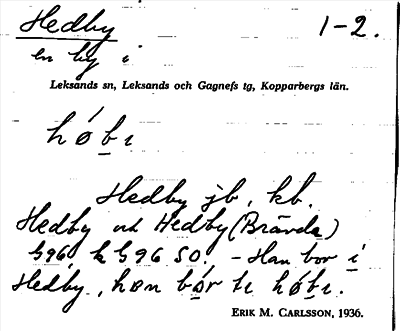 Hedby 1-2.
en by i
Leksands sn, Leksands och Gagnefs tg, Kopparbergs län.
hǿbı
Hedby jb, kb.
Hedby och Hedby (Brända)
G96, k G96 SO. - Han bor i
Hedby, han bor
ERIK M. CARLSSON, 1936.